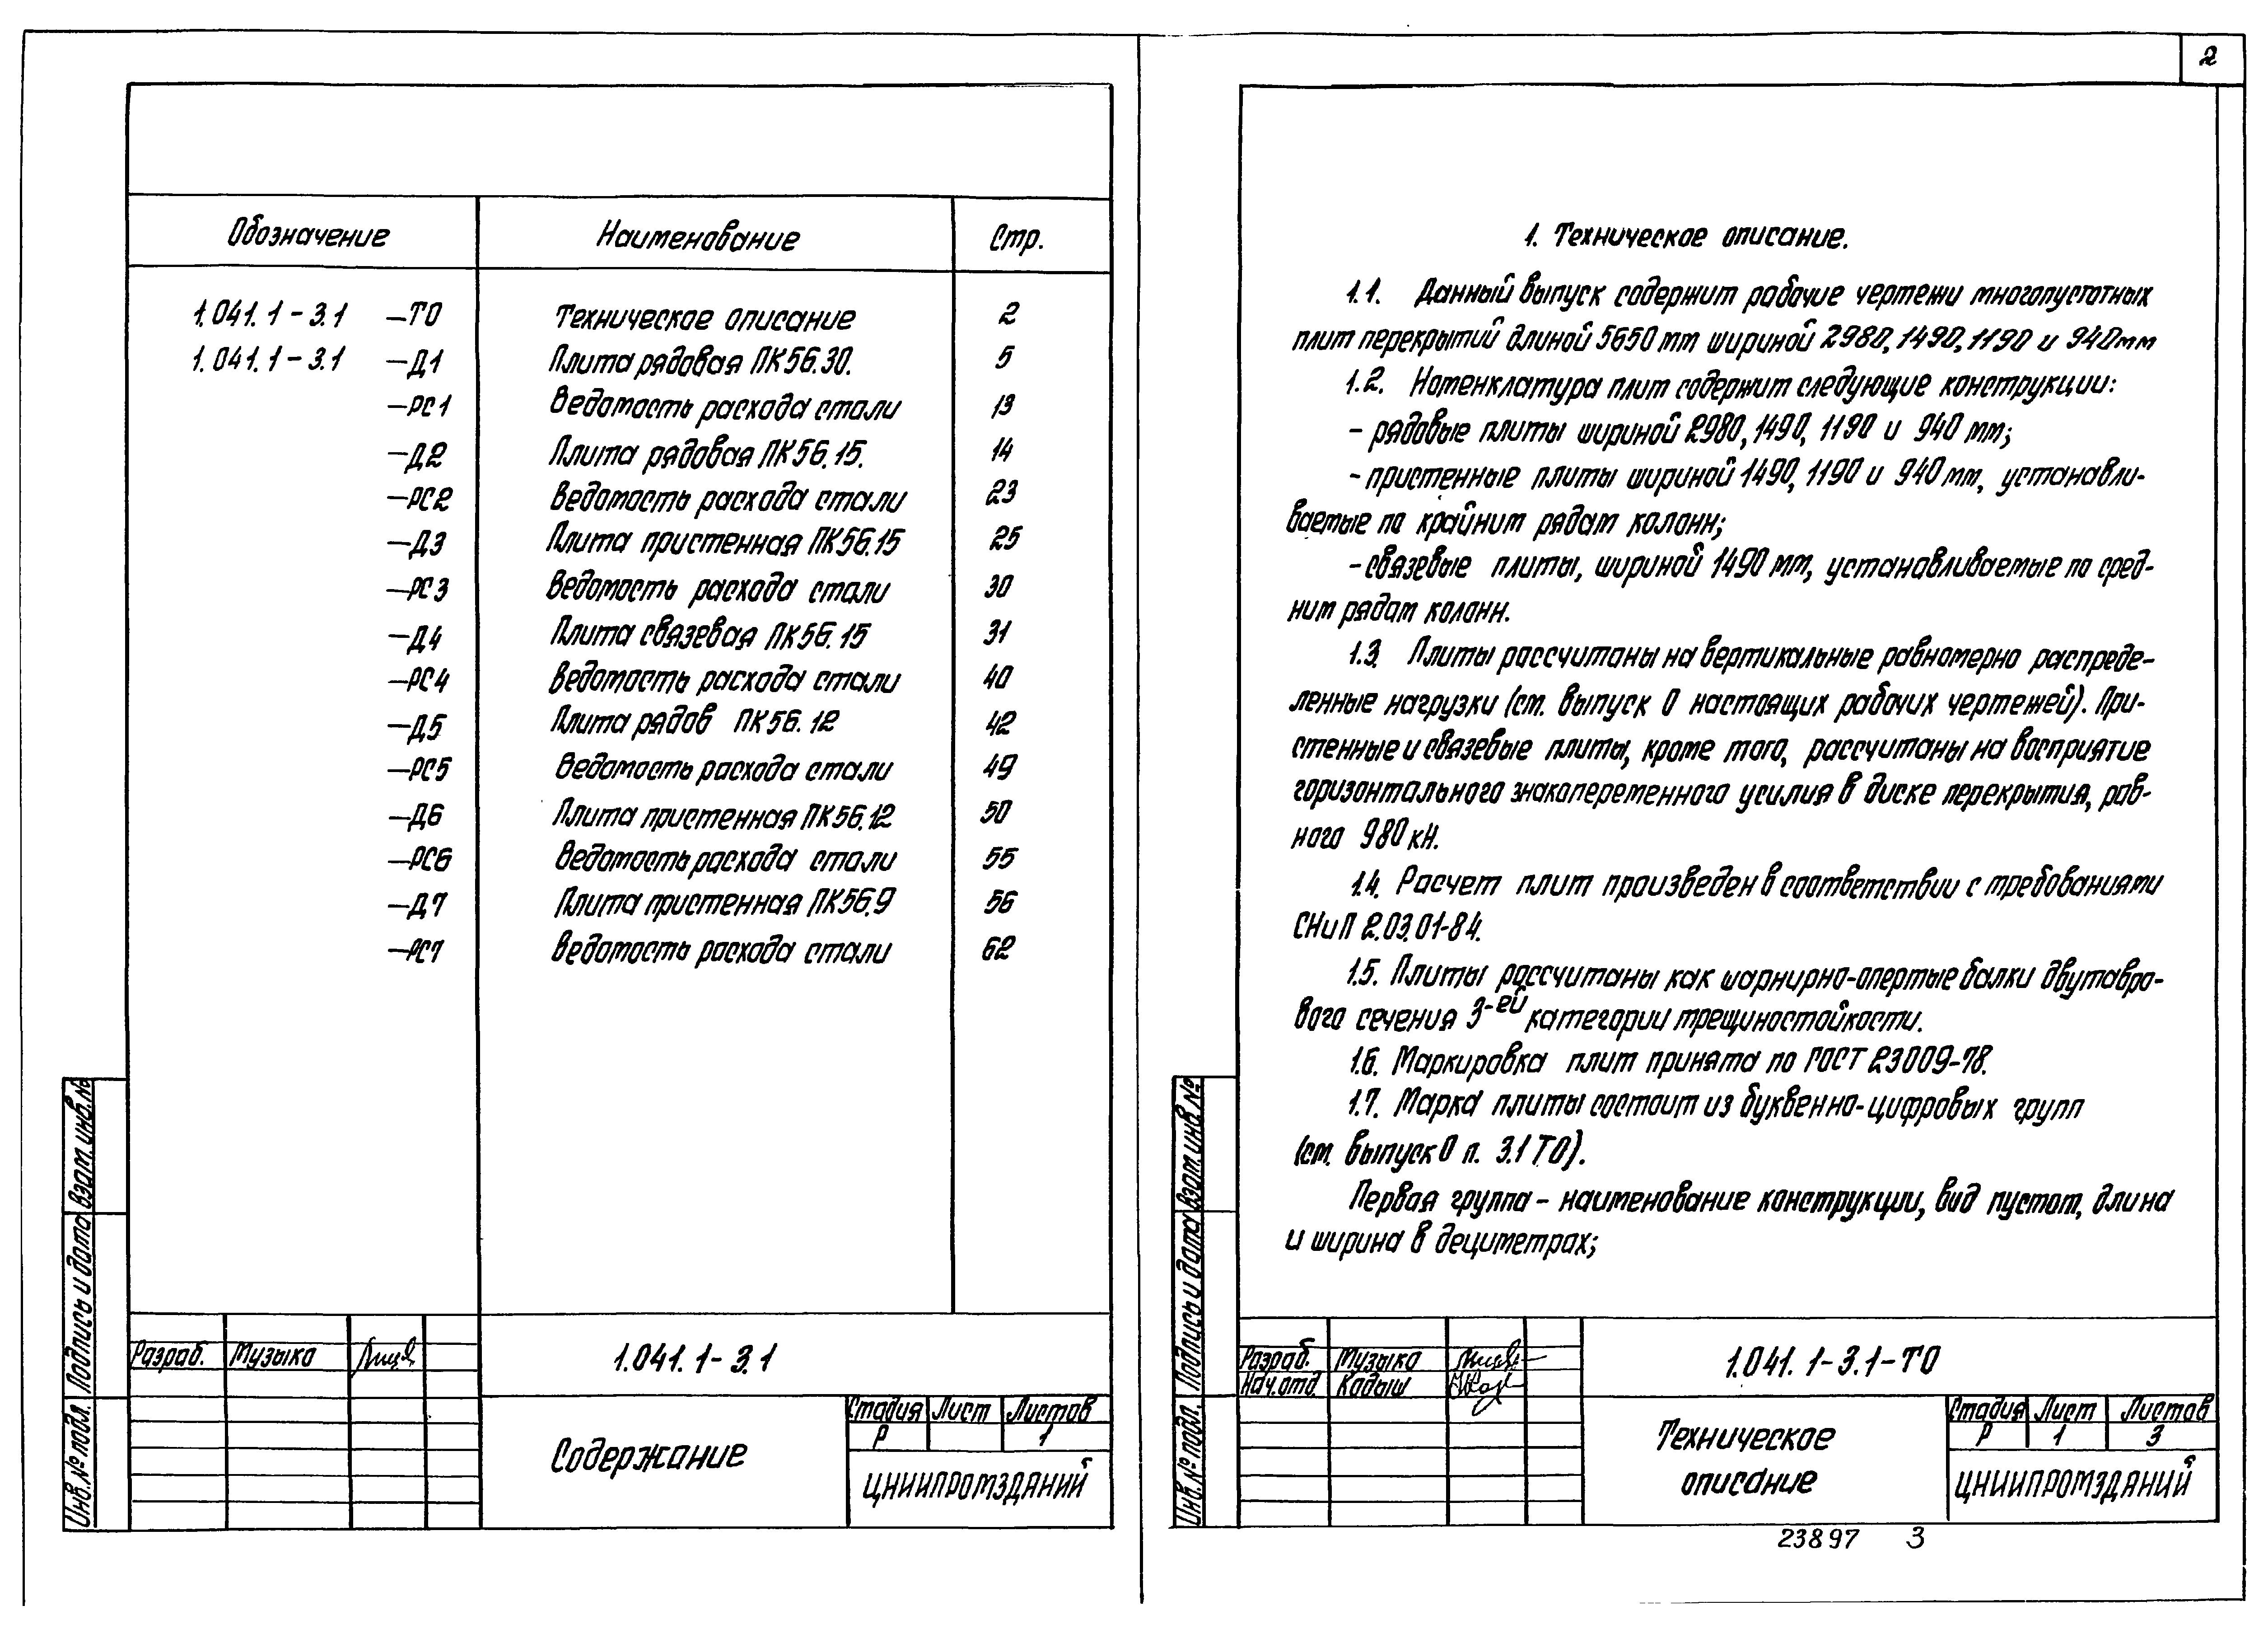 2
Обозначение Наименование Стр.
1.041.1-3.1 -ТО Техническое описание 2
1.041.1-3.1 -Д1 Плита рядовая ПК56.30. 5
-РС1 Ведомость расхода стали 13
-Д2 Плита рядовая ПК56.15. 14
-РС2 Ведомость расхода стали 23
-Д3 Плита пристенная ПК56.15 25
-РС3 Ведомость расхода стали 30
-Д4 Плита связевая ПК56.15 31
-РС4 Ведомость расхода стали 40
-Д5 Плита рядов ПК56.12 42
-РС5 Ведомость расхода стали 49
-Д6 Плита пристенная ПК56.12 50
-РС6 Ведомость расхода стали 55
-Д7 Плита пристенная ПК56.9 56
-РС7 Ведомость расхода стали 62
Взам. инв. №
Подпись и дата
Инв. № подл.
Разраб. Музыка
1.041.1-3.1
Содержание
Стадия Лист Листов
Р 1
ЦНИИПРОМЗДАНИЙ
1. Техническое описание.
1.1. Данный выпуск содержит рабочие чертежи многопустотных
плит перекрытий длиной 5650 мм шириной 2980, 1490, 1190 и 940 мм
1.2. Номенклатура плит содержит следующие конструкции:
- рядовые плиты шириной 2980, 1490, 1190 и 940 мм;
- пристенные плиты шириной 1490, 1190 и 940 мм, устанавли-
ваемые по крайним рядам колонн;
- связевые плиты, шириной 1490 мм, устанавливаемые по сред-
ним рядам колонн.
1.3. Плиты рассчитаны на вертикальные равномерно распреде-
ленные нагрузки (см. выпуск 0 настоящих рабочих чертежей). При-
стенные и связевые плиты, кроме того, рассчитаны на восприятие
горизонтального знакопеременного усилия в диске перекрытия, рав-
ного 980 кН.
1.4. Расчет плит произведен в соответствии с требованиями
СНиП 2.03.01-84.
1.5. Плиты рассчитаны как шарнирно-опертые балки двутавро-
вого сечения 3-ей категории трещиностойкости.
1.6. Маркировка плит принята по ГОСТ 23009-78.
1.7. Марка плиты состоит из буквенно-цифровых групп
(см. выпуск 0 п. 3.1 ТО).
Первая группа - наименование конструкции, вид пустот, длина
и ширина в дециметрах;
Взам. инв. №
Подпись и дата
Инв. № подл.
Разраб. Музыка
Нач. отд. Кодыш
1.041.1-3.1-ТО
Техническое
описание
Стадия Лист Листов
Р 1 3
ЦНИИПРОМЗДАНИЙ
23897 3